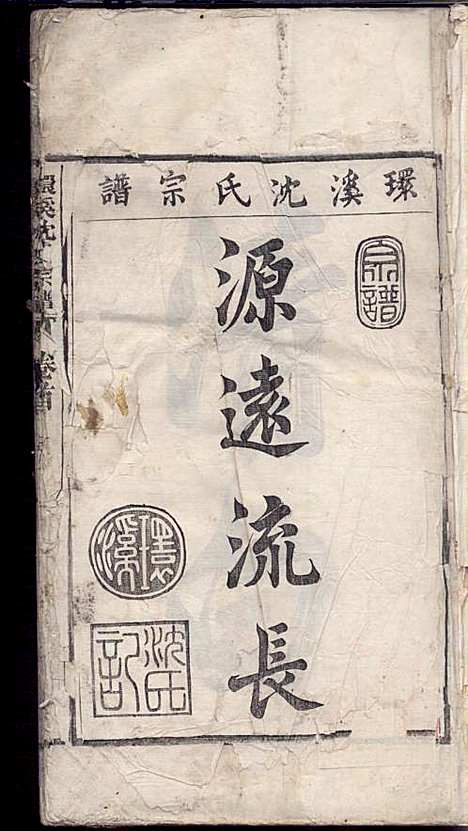 環溪沈氏宗譜
宗譜
源遠流長
環溪
沈氏記
環溪沈氏宗譜
卷首